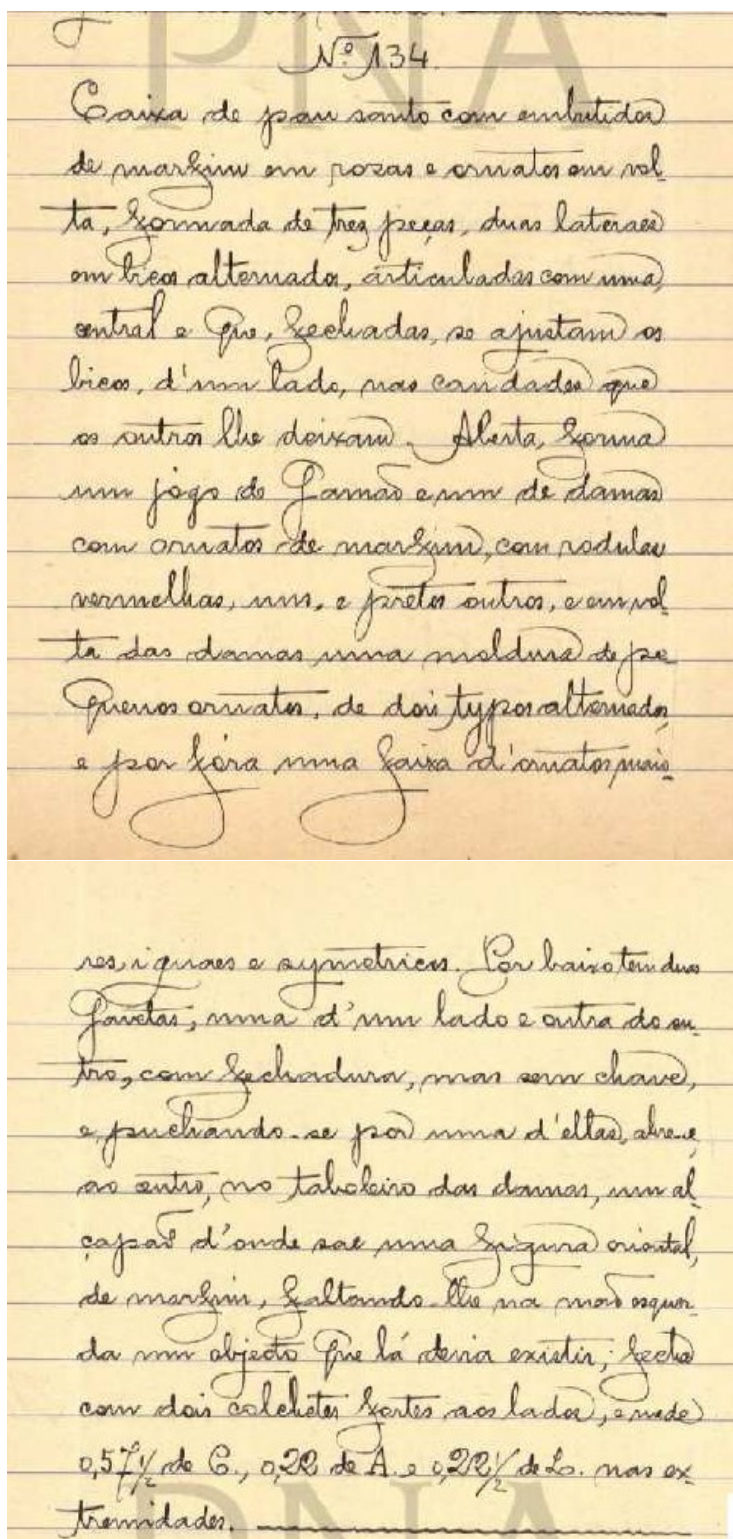 PNA
Nº 134.
Caixa de pau santo com embutidos
de marfim em rozas e ornatos em vol-
ta, formada de trez peças, duas lateraes
em bicos alternados, articuladas com uma
central e que, fechadas, se ajustam os
bicos, d'um lado, nas cavidades que
os outros lhe deixam. Aberta, forma
um jogo de gamão e um de damas
com ornatos de marfim, com rodulas
vermelhas, uns, e pretos outros, e em vol-
ta das damas uma moldura de pe-
quenos ornatos, de dois typos alternados,
e por fóra uma faixa d'ornatos maio-
res, iguaes e symetricos. Por baixo tem duas
gavetas, uma d'um lado e outra do ou-
tro, com fechadura, mas sem chave,
e, puchando-se por uma d'ellas, abre-se,
ao centro, no taboleiro das damas, um al-
çapão d'onde sae uma figura oriental,
de marfim, faltando-lhe na mão esquer-
da um objecto que lá devia existir; fecha
com dois colchetes fortes aos lados, e mede
0,57 1/2 de C., 0,22 de A. e 0,22 1/2 de L. nas ex-
tremidades.
PNA